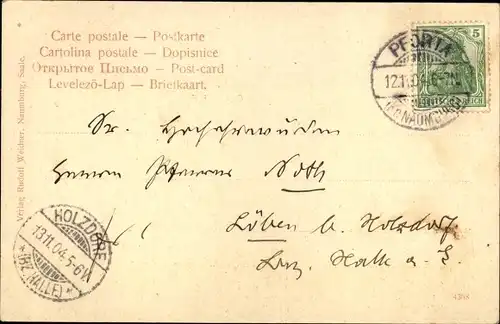 Carte postale — Postkarte
Cartolina postale — Dopisnice
Открытое Письмо — Post-card
Levelező-Lap — Briefkaart.
PFORTA
12.11.04. 6-7N.
5
DEUTSCHES REICH
Verlag Rudolf Weidner, Naumburg, Saale.
Sr. Hochehrwürden
Herrn Pfarrer Noth
Löben b. Holzdorf
Bez. Halle a. S.
HOLZDORF
13.11.04. 5-6
*(BZ. HALLE)*